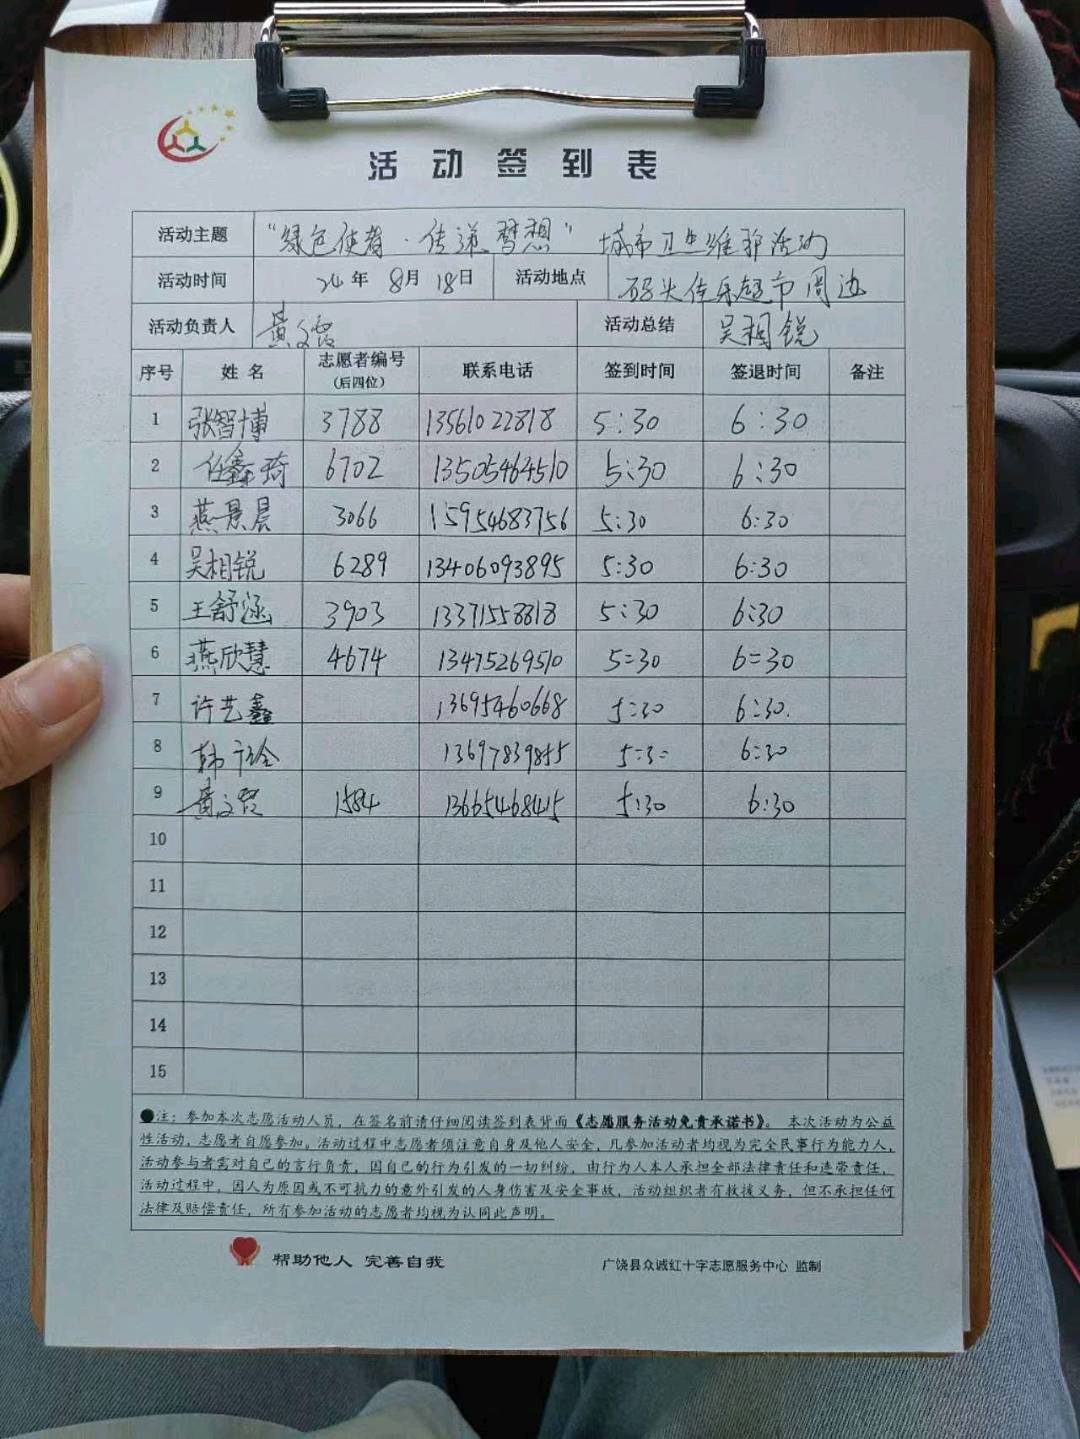 活动签到表
活动主题 "绿色使者·传递梦想" 城市卫生维护活动
活动时间 24年 8月 18日 活动地点 码头佳乐超市周边
活动负责人 黄文 活动总结 吴相锐
序号 姓名 志愿者编号(后四位) 联系电话 签到时间 签退时间 备注
1 张智博 3788 13561022818 5:30 6:30
2 任鑫琦 6702 13505464510 5:30 6:30
3 燕景晨 3066 15954683756 5:30 6:30
4 吴相锐 6289 13406093895 5:30 6:30
5 王舒涵 3903 13371558818 5:30 6:30
6 燕欣慧 4674 13475269510 5=30 6=30
7 许艺鑫 13695460668 5:30 6:30.
8 韩 13697839855 5:30 6:30
9 黄文 1584 13665468415 5:30 6:30
10
11
12
13
14
15
●注：参加本次志愿活动人员，在签名前请仔细阅读签到表背面《志愿服务活动免责承诺书》。本次活动为公益
性活动，志愿者自愿参加。活动过程中志愿者须注意自身及他人安全，凡参加活动者均视为完全民事行为能力人，
活动参与者需对自己的言行负责，因自己的行为引发的一切纠纷，由行为人本人承担全部法律责任和连带责任，
活动过程中，因人为原因或不可抗力的意外引发的人身伤害及安全事故，活动组织者有救援义务，但不承担任何
法律及赔偿责任，所有参加活动的志愿者均视为认同此声明。
帮助他人 完善自我 广饶县众诚红十字志愿服务中心 监制